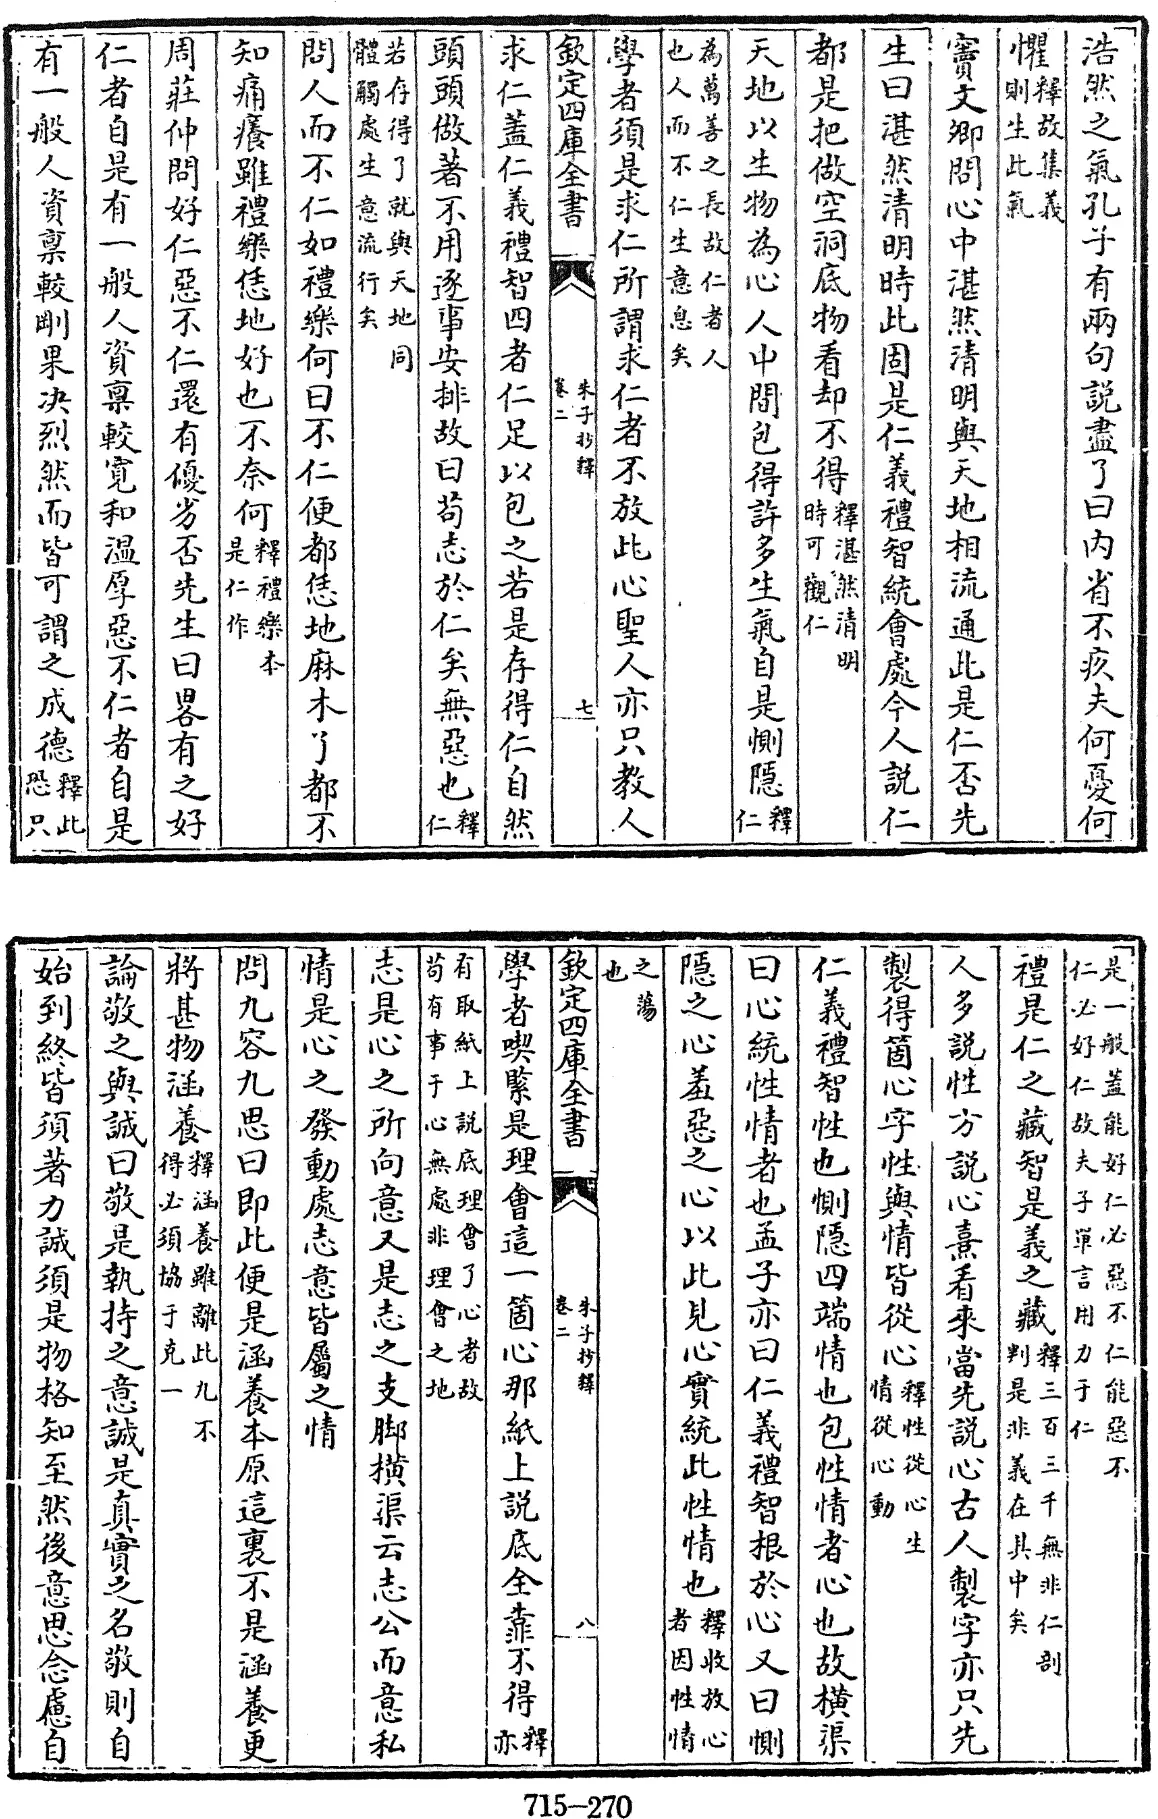 浩然之氣孔子有兩句説盡了曰内省不疚夫何憂何
懼釋故集義則生此氣
竇文卿問心中湛然清明與天地相流通此是仁否先
生曰湛然清明時此固是仁義禮智統會處今人説仁
都是把做空洞底物看却不得釋湛然清明時可觀仁
天地以生物為心人中間包得許多生氣自是惻隠釋仁
為萬善之長故仁者人也人而不仁生意息矣
學者須是求仁所謂求仁者不放此心聖人亦只教人
欽定四庫全書 朱子抄釋卷二 七
求仁蓋仁義禮智四者仁足以包之若是存得仁自然
頭頭做著不用逐事安排故曰苟志於仁矣無惡也釋仁
若存得了就與天地同體觸處生意流行矣
問人而不仁如禮樂何曰不仁便都恁地麻木了都不
知痛癢雖禮樂恁地好也不奈何釋禮樂本是仁作
周莊仲問好仁惡不仁還有優劣否先生曰畧有之好
仁者自是有一般人資稟較寛和温厚惡不仁者自是
有一般人資稟較剛果決烈然而皆可謂之成德釋此恐只
是一般蓋能好仁必惡不仁能惡不仁必好仁故夫子單言用力于仁
禮是仁之藏智是義之藏釋三百三千無非仁剖判是非義在其中矣
人多説性方説心熹看來當先説心古人製字亦只先
製得箇心字性與情皆從心釋性從心生情從心動
仁義禮智性也惻隠四端情也包性情者心也故横渠
曰心統性情者也孟子亦曰仁義禮智根於心又曰惻
隠之心羞惡之心以此見心實統此性情也釋收放心者因性情
之蕩也
欽定四庫全書 朱子抄釋卷二 八
學者喫緊是理會這一箇心那紙上説底全靠不得釋亦
有取紙上説底理會了心者故苟有事于心無處非理會之地
志是心之所向意又是志之支脚横渠云志公而意私
情是心之發動處志意皆屬之情
問九容九思曰即此便是涵養本原這裏不是涵養更
將甚物涵養釋涵養雖離此九不得必須協于克一
論敬之與誠曰敬是執持之意誠是真實之名敬則自
始到終皆須著力誠須是物格知至然後意思念慮自
715-270